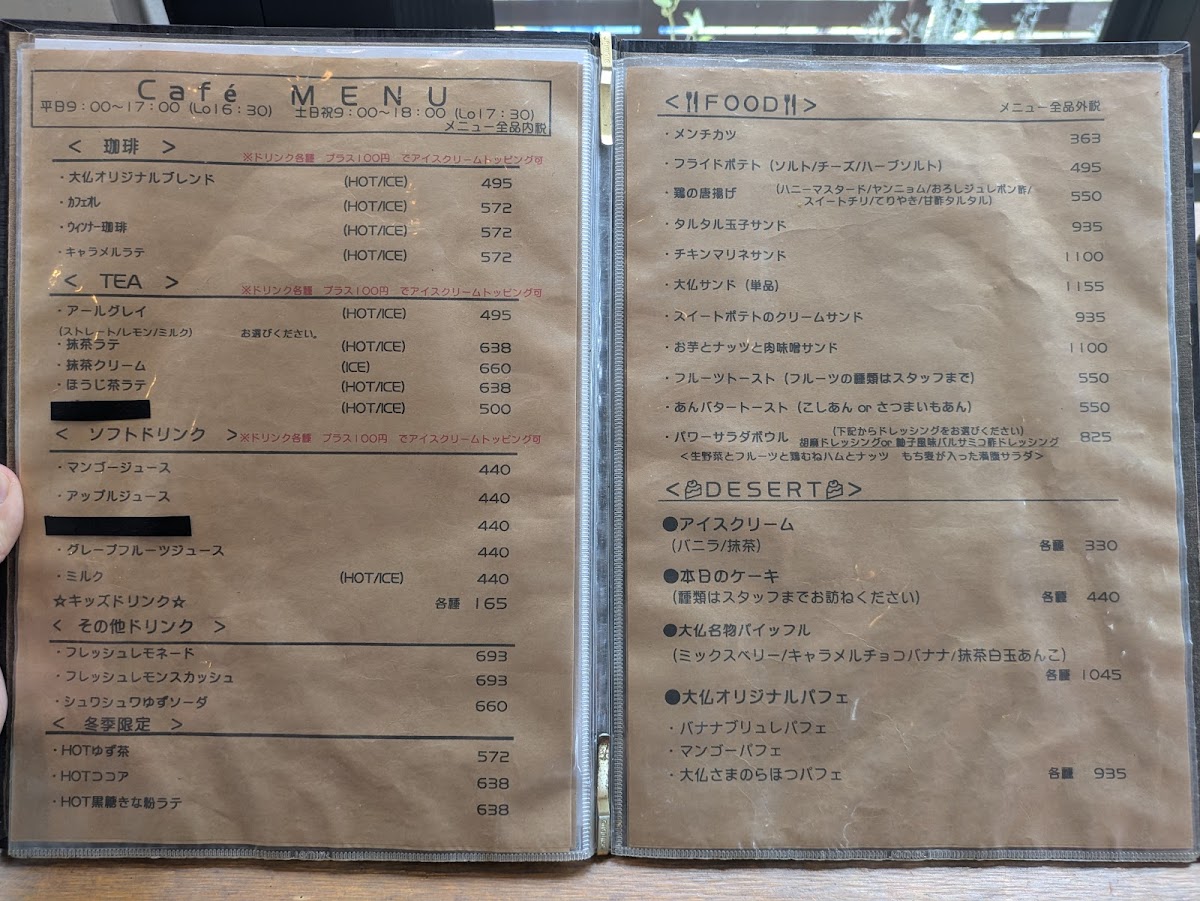 Café MENU
平日9：00～17：00 (Lo16：30) 土日祝9：00～18：00 (Lo17：30)
メニュー全品内税
< 珈琲 >
※ドリンク各種 プラス100円 でアイスクリームトッピング可
・大仏オリジナルブレンド (HOT/ICE) 495
・カフェオレ (HOT/ICE) 572
・ウィンナー珈琲 (HOT/ICE) 572
・キャラメルラテ (HOT/ICE) 572
< TEA >
※ドリンク各種 プラス100円 でアイスクリームトッピング可
・アールグレイ (HOT/ICE) 495
(ストレート/レモン/ミルク) お選びください。
・抹茶ラテ (HOT/ICE) 638
・抹茶クリーム (ICE) 660
・ほうじ茶ラテ (HOT/ICE) 638
(HOT/ICE) 500
< ソフトドリンク >
※ドリンク各種 プラス100円 でアイスクリームトッピング可
・マンゴージュース 440
・アップルジュース 440
440
・グレープフルーツジュース 440
・ミルク (HOT/ICE) 440
☆キッズドリンク☆ 各種 165
< その他ドリンク >
・フレッシュレモネード 693
・フレッシュレモンスカッシュ 693
・シュワシュワゆずソーダ 660
< 冬季限定 >
・HOTゆず茶 572
・HOTココア 638
・HOT黒糖きな粉ラテ 638
<FOOD>
メニュー全品外税
・メンチカツ 363
・フライドポテト (ソルト/チーズ/ハーブソルト) 495
・鶏の唐揚げ (ハニーマスタード/ヤンニョム/おろしジュレポン酢/
スイートチリ/てりやき/甘酢タルタル) 550
・タルタル玉子サンド 935
・チキンマリネサンド 1100
・大仏サンド (単品) 1155
・スイートポテトのクリームサンド 935
・お芋とナッツと肉味噌サンド 1100
・フルーツトースト (フルーツの種類はスタッフまで) 550
・あんバタートースト (こしあん or さつまいもあん) 550
・パワーサラダボウル (下記からドレッシングをお選びください) 825
胡麻ドレッシングor 動子風味バルサミコ酢ドレッシング
<生野菜とフルーツと鶏むねハムとナッツ もち麦が入った満腹サラダ>
<DESERT>
●アイスクリーム
(バニラ/抹茶) 各種 330
●本日のケーキ
(種類はスタッフまでお訪ねください) 各種 440
●大仏名物パイッフル
(ミックスベリー/キャラメルチョコバナナ/抹茶白玉あんこ)
各種 1045
●大仏オリジナルパフェ
・バナナブリュレパフェ
・マンゴーパフェ
・大仏さまのらほつパフェ 各種 935